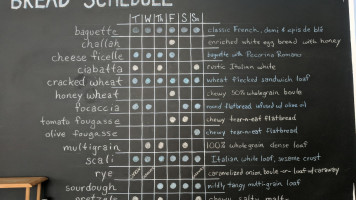 BREAD SCHEDULE
T W Th F S Su
baguette classic French, demi & epis de blé
challah enriched white egg bread with honey
cheese ficelle baguette with Pecorino Romano
ciabatta rustic Italian white
cracked wheat wheat flecked sandwich loaf
honey wheat chewy 50% wholegrain boule
focaccia round flatbread, infused w/ olive oil
tomato fougasse chewy tear-n-eat flatbread
olive fougasse chewy tear-n-eat flatbread
multigrain 100% wholegrain dense loaf
scali Italian white loaf, sesame crust
rye caramelized onion boule -or- loaf w/ caraway
sourdough mildly tangy multi-grain loaf
pretzels chewy, salty, malty